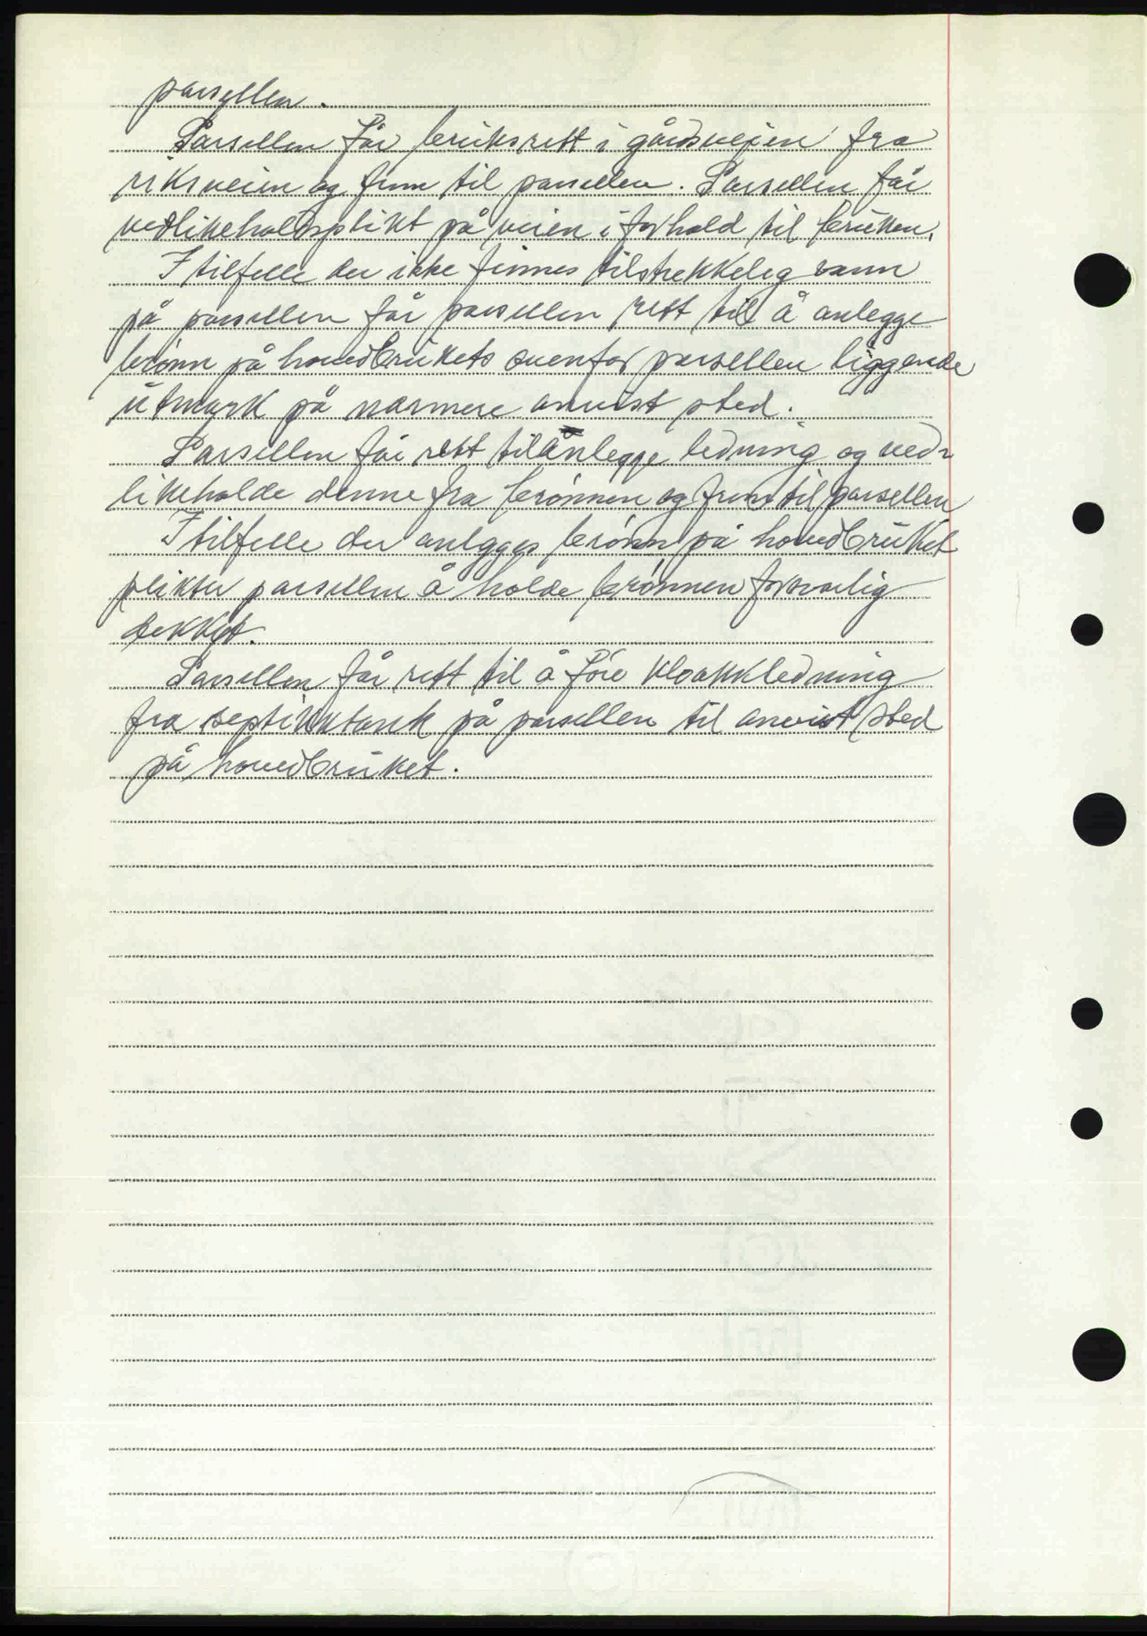 parsellen.
Parsellen får bruksrett i gårdsveien fra
riksveien og frem til parsellen. Parsellen får
vedlikeholdsplikt på veien i forhold til bruken.
I tilfelle der ikke finnes tilstrekkelig vann
på parsellen får parsellen rett til å anlegge
brønn på hovedbrukets ovenfor parsellen liggende
utmark på nærmere anvist sted.
Parsellen får rett til anlegge ledning og ved-
likeholde denne fra brønnen og frem til parsellen
I tilfelle der anlegges brønn på hovedbruket
plikter parsellen å holde brønnen forsvarlig
dekket.
Parsellen får rett til å føre kloakkledning
fra septiktank på parsellen til anvist sted
på hovedbruket.